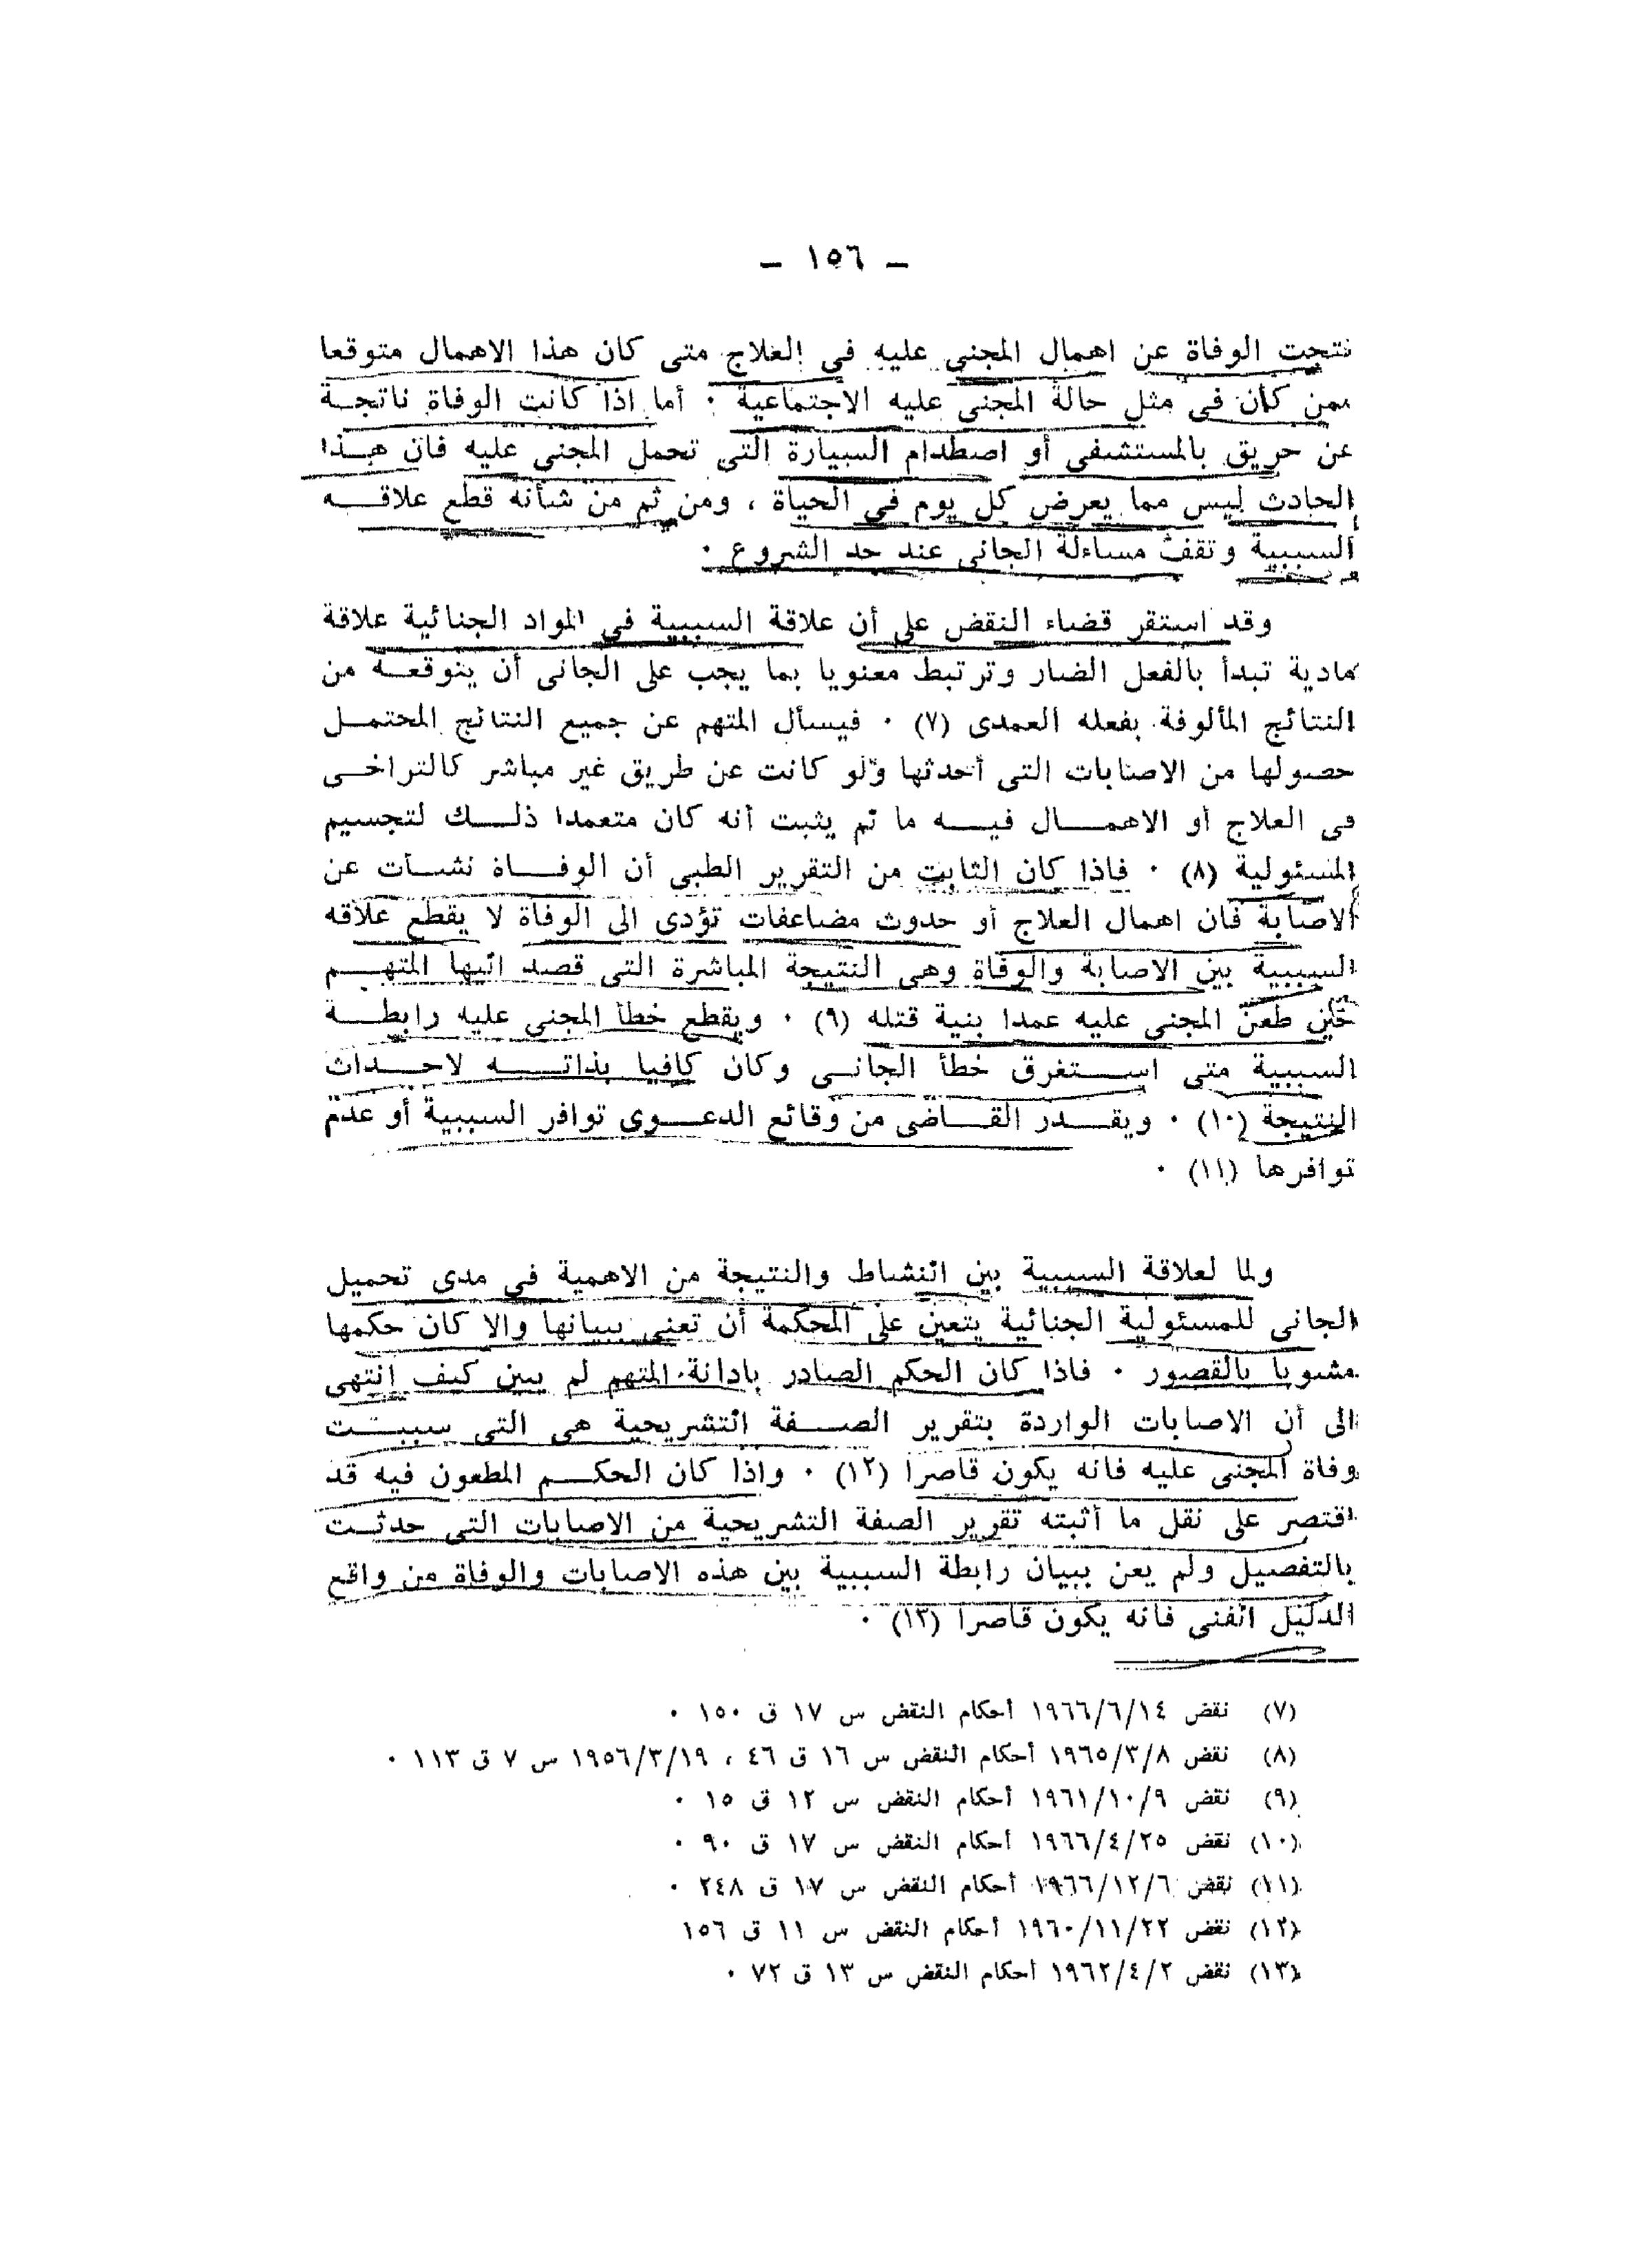 — ١٥٦ —
نتجت الوفاة عن اهمال المجنى عليه فى العلاج متى كان هذا الاهمال متوقعا
ممن كان فى مثل حالة المجنى عليه الاجتماعية . أما اذا كانت الوفاة ناتجة
عن حريق بالمستشفى أو اصطدام السيارة التى تحمل المجنى عليه فان هذا
الحادث ليس مما يعرض كل يوم فى الحياة ، ومن ثم من شأنه قطع علاقه
السببية وتقف مساءلة الجانى عند حد الشروع .
وقد استقر قضاء النقض على أن علاقة السببية فى المواد الجنائية علاقة
مادية تبدأ بالفعل الضار وترتبط معنويا بما يجب على الجانى أن يتوقعه من
النتائج المألوفة بفعله العمدى (٧) . فيسأل المتهم عن جميع النتائج المحتمل
حصولها من الاصابات التى أحدثها ولو كانت عن طريق غير مباشر كالتراخى
فى العلاج أو الاهمال فيه ما لم يثبت أنه كان متعمدا ذلك لتجسيم
المسئولية (٨) . فاذا كان الثابت من التقرير الطبى أن الوفاة نشأت عن
الاصابة فان اهمال العلاج أو حدوث مضاعفات تؤدى الى الوفاة لا يقطع علاقه
السببية بين الاصابة والوفاة وهى النتيجة المباشرة التى قصد اليها المتهم
حين طعن المجنى عليه عمدا بنية قتله (٩) . ويقطع خطأ المجنى عليه رابطة
السببية متى استغرق خطأ الجانى وكان كافيا بذاته لاحداث
النتيجة (١٠) . ويقدر القاضى من وقائع الدعوى توافر السببية أو عدم
توافرها (١١) .
ولما لعلاقة السببية بين النشاط والنتيجة من الاهمية فى مدى تحميل
الجانى للمسئولية الجنائية يتعين على المحكمة أن تعنى ببيانها والا كان حكمها
مشوبا بالقصور . فاذا كان الحكم الصادر بادانة المتهم لم يبين كيف انتهى
الى أن الاصابات الواردة بتقرير الصفة التشريحية هى التى سببت
وفاة المجنى عليه فانه يكون قاصرا (١٢) . واذا كان الحكم المطعون فيه قد
اقتصر على نقل ما أثبته تقرير الصفة التشريحية من الاصابات التى حدثت
بالتفصيل ولم يعن ببيان رابطة السببية بين هذه الاصابات والوفاة من واقع
الدليل الفنى فانه يكون قاصرا (١٣) .
(٧) نقض ١٩٦٦/٦/١٤ أحكام النقض س ١٧ ق ١٥٠ .
(٨) نقض ١٩٦٥/٣/٨ أحكام النقض س ١٦ ق ٤٦ ، ١٩٥٦/٣/١٩ س ٧ ق ١١٣ .
(٩) نقض ١٩٦١/١٠/٩ أحكام النقض س ١٢ ق ١٥ .
(١٠) نقض ١٩٦٦/٤/٢٥ أحكام النقض س ١٧ ق ٩٠ .
(١١) نقض ١٩٦٦/١٢/٦ أحكام النقض س ١٧ ق ٢٤٨ .
(١٢) نقض ١٩٦٠/١١/٢٢ أحكام النقض س ١١ ق ١٥٦
(١٣) نقض ١٩٦٢/٤/٢ أحكام النقض س ١٣ ق ٧٢ .